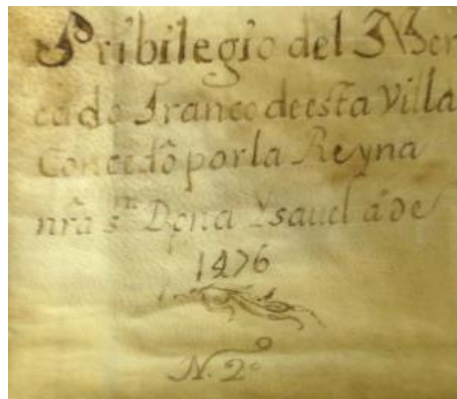 Pribilegio del Mer
cado Franco de esta Villa
Concedõ por la Reyna
nrã s.ra Dona Ysauel aº de
1476
N. 2º